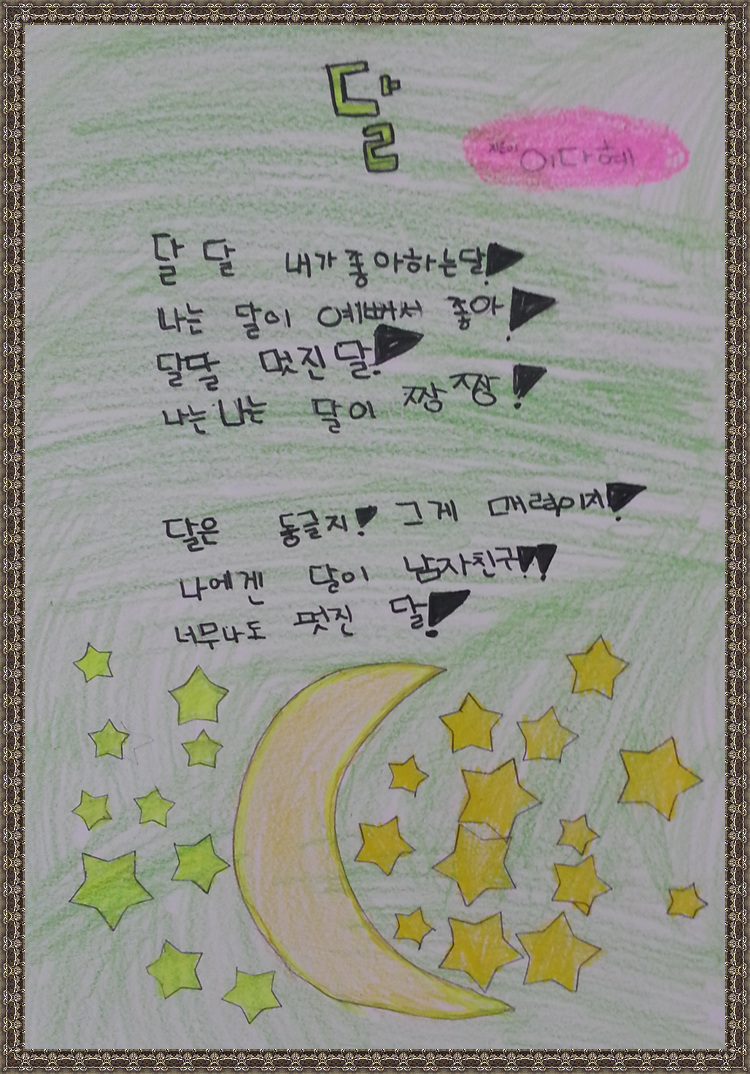 달
지은이 이다혜
달 달 내가 좋아하는달!
나는 달이 예뻐서 좋아!
달달 멋진달!
나는나는 달이 짱짱!
달은 둥글지! 그게 매력이지!
나에겐 달이 남자친구!!
너무나도 멋진 달!